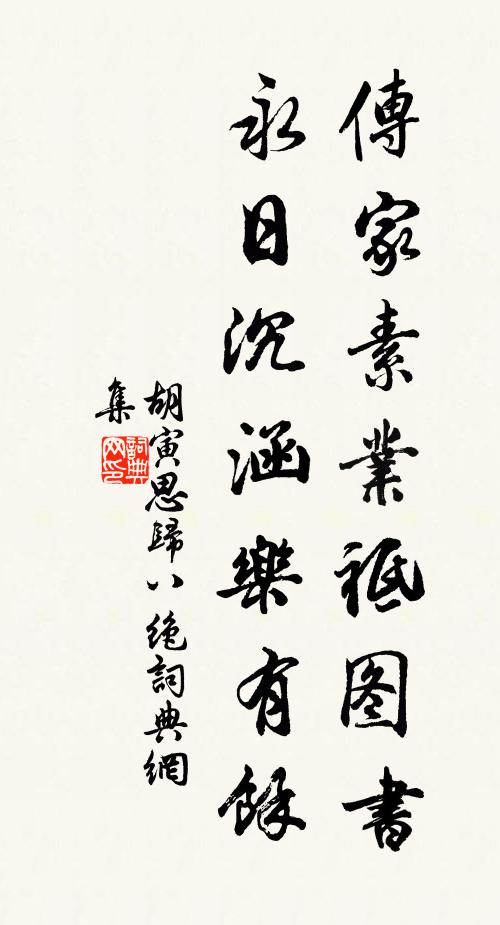 傳家素業祗图書
永日沉涵樂有餘
胡寅思歸八绝詞典網
集
詞典
网印